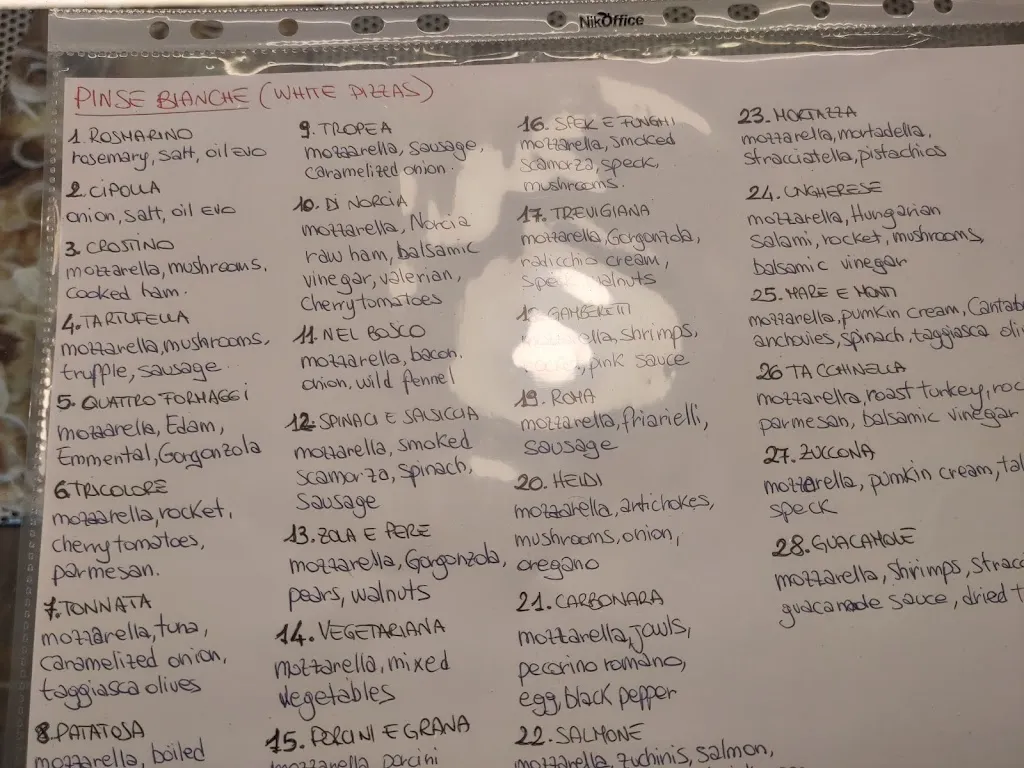 NikOffice
PINSE BIANCHE (WHITE PIZZAS)
1. ROSMARINO
rosemary, salt, oil EVO
2. CIPOLLA
onion, salt, oil EVO
3. CROSTINO
mozzarella, mushrooms,
cooked ham.
4. TARTUFELLA
mozzarella, mushrooms,
truffle, sausage
5. QUATTRO FORMAGGI
mozzarella, Edam,
Emmental, Gorgonzola
6 TRICOLORE
mozzarella, rocket,
cherry tomatoes,
parmesan.
7. TONNATA
mozzarella, tuna,
caramelized onion,
taggiasca olives
8. PATATOSA
mozzarella, boiled
9. TROPEA
mozzarella, sausage,
caramelized onion.
10. DI NORCIA
mozzarella, Norcia
raw ham, balsamic
vinegar, valerian,
cherry tomatoes
11. NEL BOSCO
mozzarella, bacon,
onion, wild fennel
12. SPINACI E SALSICCIA
mozzarella, smoked
scamorza, spinach,
sausage
13. ZOLA E PERE
mozzarella, Gorgonzola,
pears, walnuts
14. VEGETARIANA
mozzarella, mixed
vegetables
15. PORCINI E GRANA
mozzarella porcini
16. SPEK E FUNGHI
mozzarella, smoked
scamorza, speck,
mushrooms.
17. TREVIGIANA
mozzarella, Gorgonzola,
radicchio cream,
walnuts
GAMBERETTI
shrimps,
pink sauce
19. ROMA
mozzarella, friarielli,
sausage
20. HEIDI
mozzarella, artichokes,
mushrooms, onion,
oregano
21. CARBONARA
mozzarella, jowls,
pecorino romano,
egg, black pepper
22. SALMONE
mozzarella, zuchinis, salmon,
23. MORTAZZA
mozzarella, mortadella,
stracciatella, pistachios
24. UNGHERESE
mozzarella, Hungarian
salami, rocket, mushrooms,
balsamic vinegar
25. MARE E MONTI
mozzarella, pumkin cream,
anchovies, spinach, taggiasca
26 TACCHINELLA
mozzarella, roast turkey,
parmesan, balsamic vinegar
27. ZUCCONA
mozzarella, pumkin cream,
speck
28. GUACAMOLE
mozzarella, shrimps,
guacamole sauce, dried